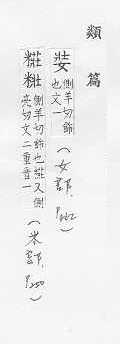 類篇
妝 側羊切飾也文一 （女部，P462）
糚粧 側羊切飾也糚又側亮切文二重音一 （米部，P250）